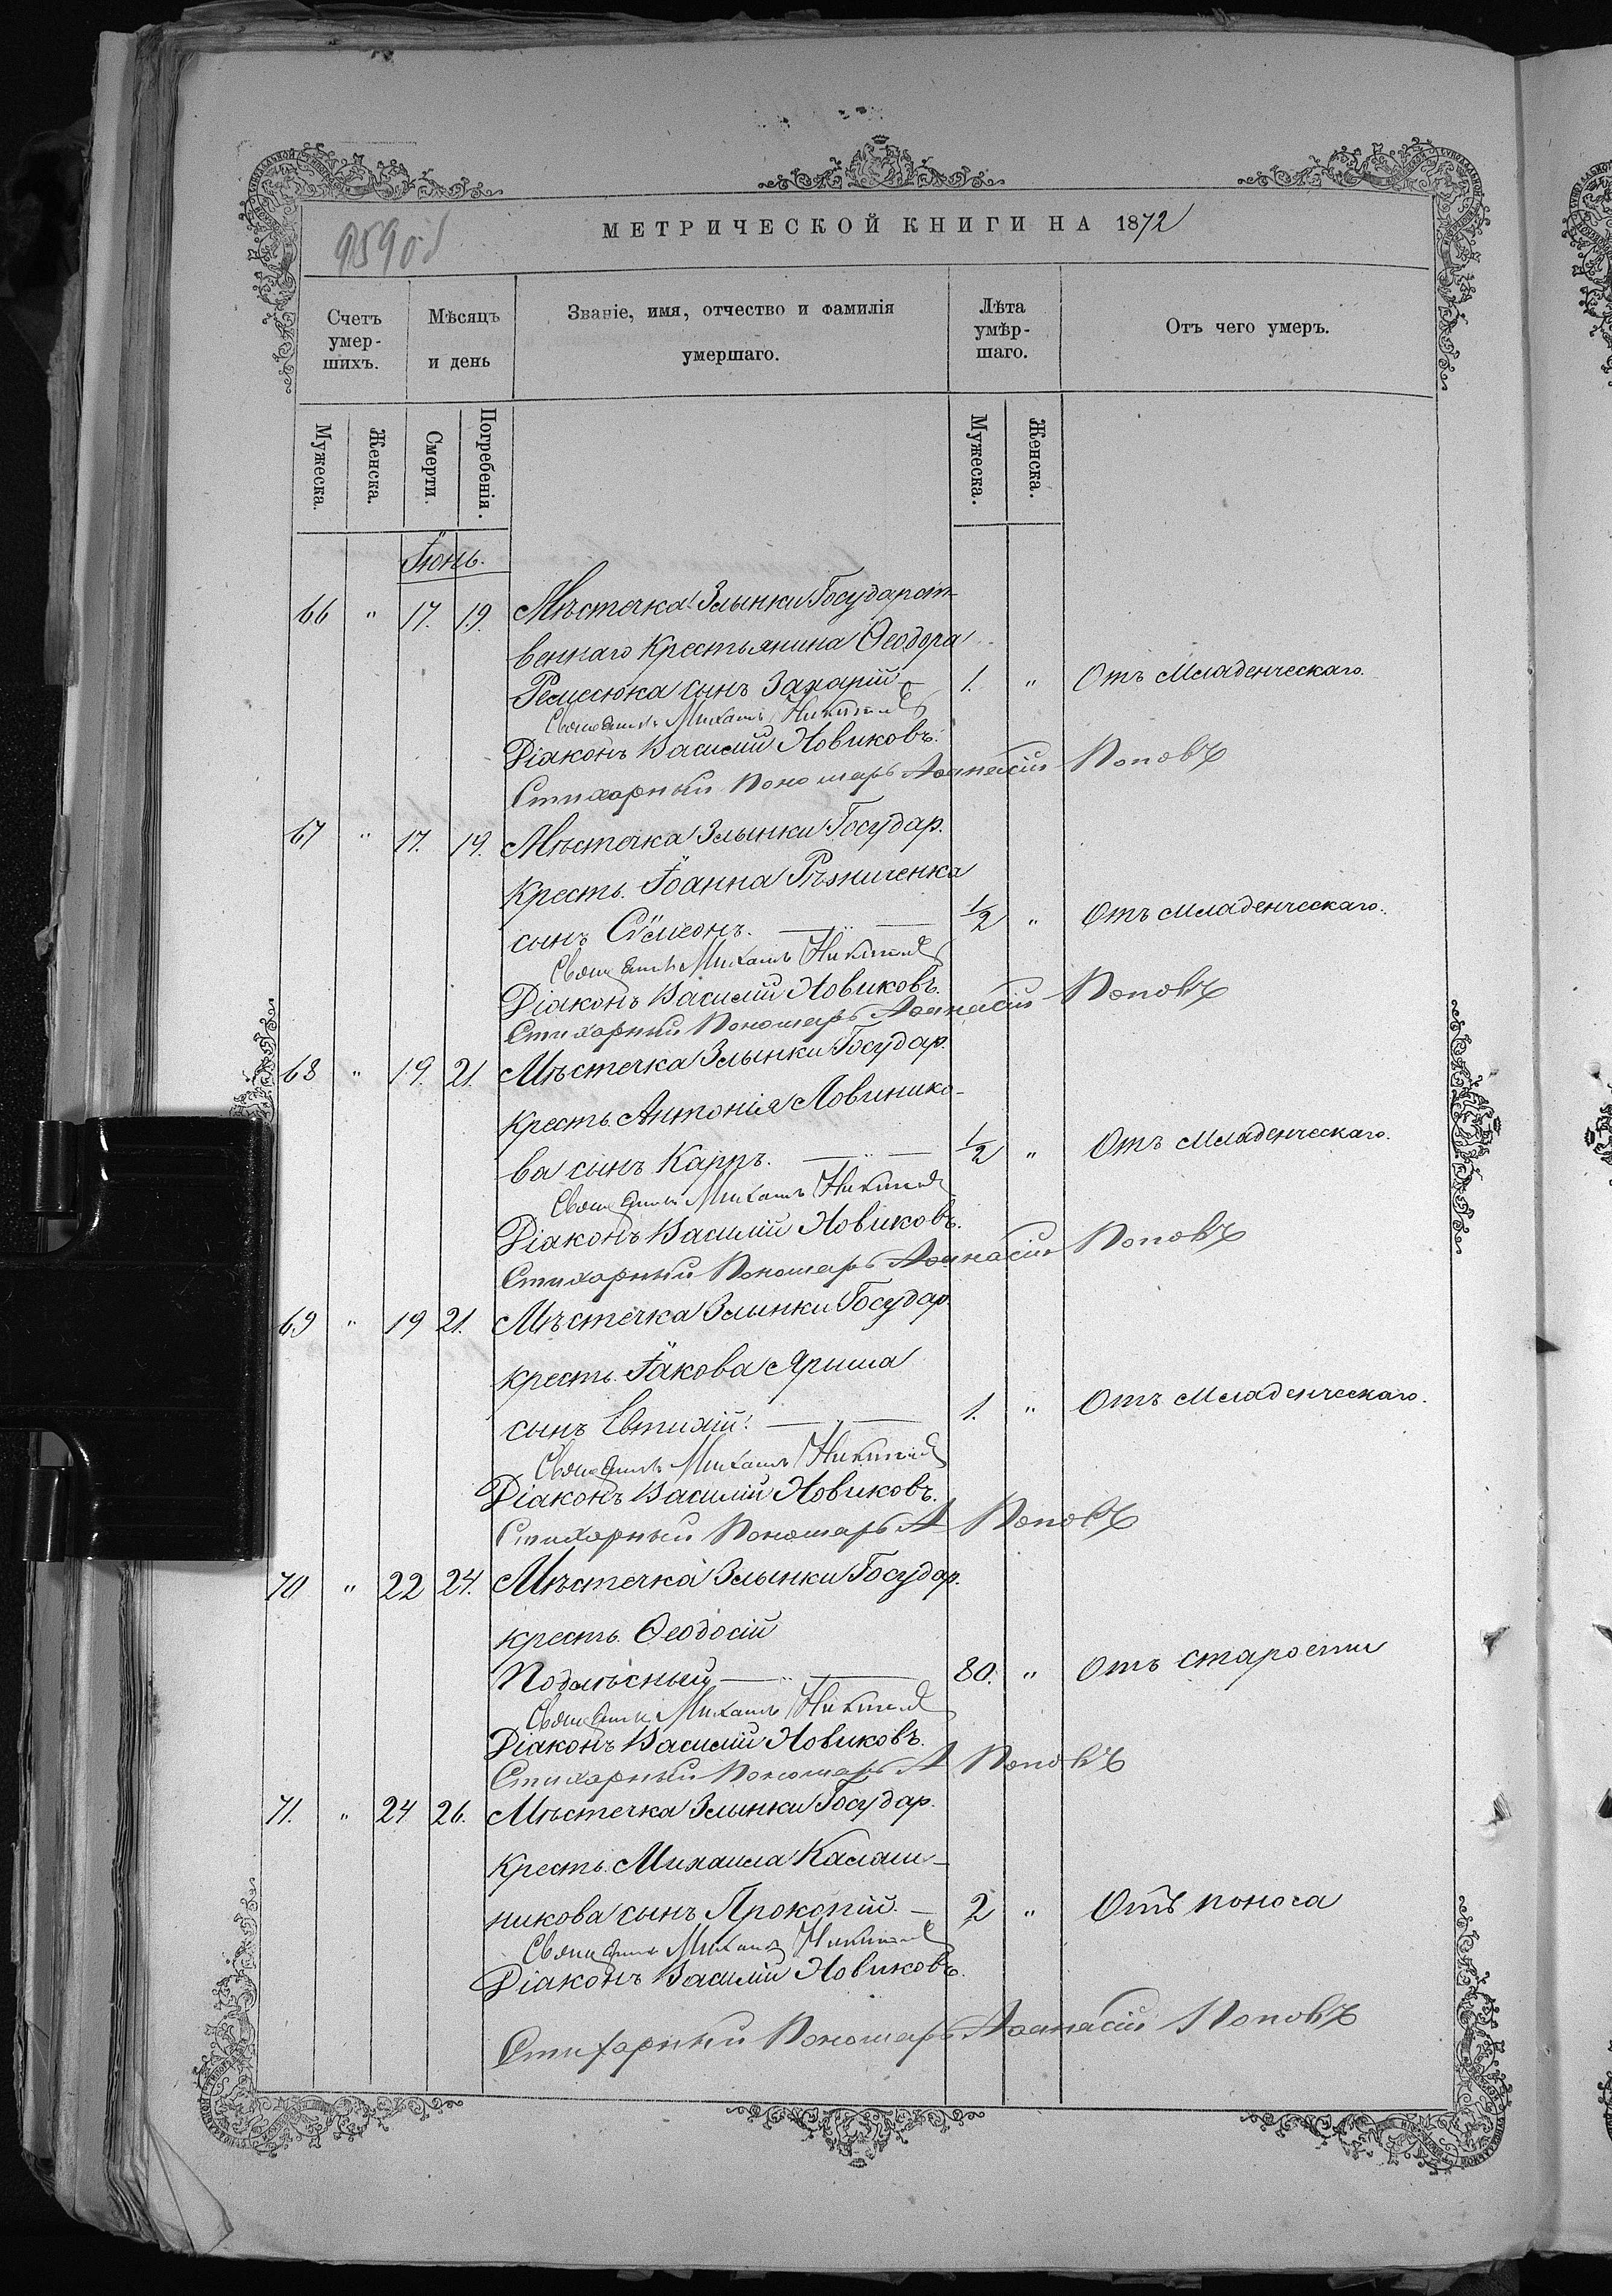 МЕТРИЧЕСКОЙ КНИГИ НА 1872
Счетъ умер-шихъ. Мѣсяцъ и день Званіе, имя, отчество и фамилія умершаго. Лѣта умѣр-шаго. Отъ чего умеръ.
Мужеска. Женска. Смерти. Погребенія. Мужеска. Женска.
Іюнь.
66 " 17. 19. Мѣстечка Злынки Государст-
веннаго Крестьянина Ѳеодора
сынъ Захарій 1. " Отъ Младенческаго.
Священникъ Михаилъ
Діаконъ Василій Новиковъ.
Стихарный Пономарь Аѳанасій Поповъ
67 " 17. 19. Мѣстечка Злынки Государ.
Крестъ. Іоанна Рѣзниченка
сынъ Сѵмеонъ. 1/2 " Отъ Младенческаго.
Священникъ Михаилъ
Діаконъ Василій Новиковъ.
Стихарный Пономарь Аѳанасій Поповъ
68 " 19. 21. Мѣстечка Злынки Государ.
Крестъ. Антонія Ловинико-
ва сынъ Карпъ. 1/2 " Отъ Младенческаго.
Священникъ Михаилъ
Діаконъ Василій Новиковъ.
Стихарный Пономарь Аѳанасій Поповъ
69 " 19 21. Мѣстечка Злынки Государ.
крестъ. Іакова Яриша
сынъ Евтихій. 1. " Отъ Младенческаго.
Священникъ Михаилъ
Діаконъ Василій Новиковъ.
Стихарный Пономарь А Поповъ
70 " 22 24. Мѣстечка Злынки Государ.
крестъ. Ѳеодосій
Подлѣсный 80. " Отъ старости
Священникъ Михаилъ
Діаконъ Василій Новиковъ.
Стихарный Пономарь А Поповъ
71. " 24 26. Мѣстечка Злынки Государ.
Крестъ. Михаила Калаш-
никова сынъ Прокопій. 2 " Отъ поноса
Священникъ Михаилъ
Діаконъ Василій Новиковъ.
Стихарный Пономарь Аѳанасій Поповъ